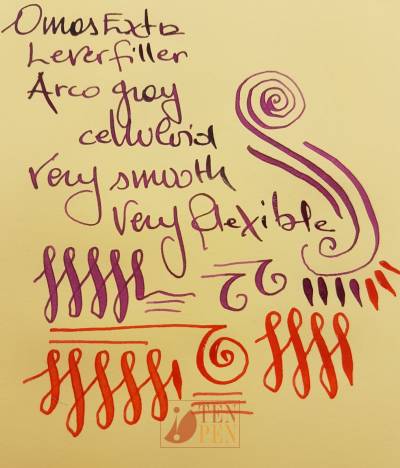 Omas Extra
Leverfiller
Arco gray
celluloid
Very smooth
Very flexible
TEN
PEN